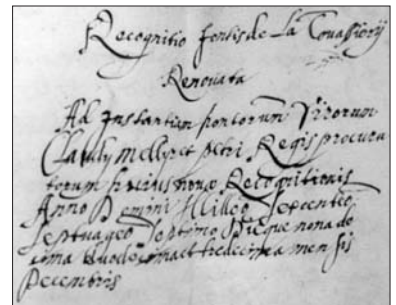 Recognitio fontis de La
Renovata
Ad Instantiam Virorum
Claudy et petri Regis procura
torum novæ Recognitionis
Anno Domini Milleo Sexcenteo
Septuageo Septimo Dieque nona de
cima duodecima et tredecima mensis
Decembris